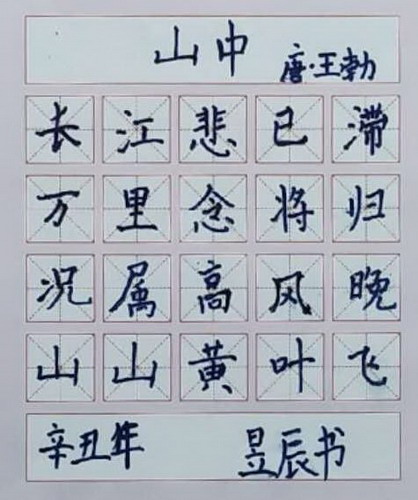 山中 唐·王勃
长江悲已滞
万里念将归
况属高风晚
山山黄叶飞
辛丑年 昱辰书